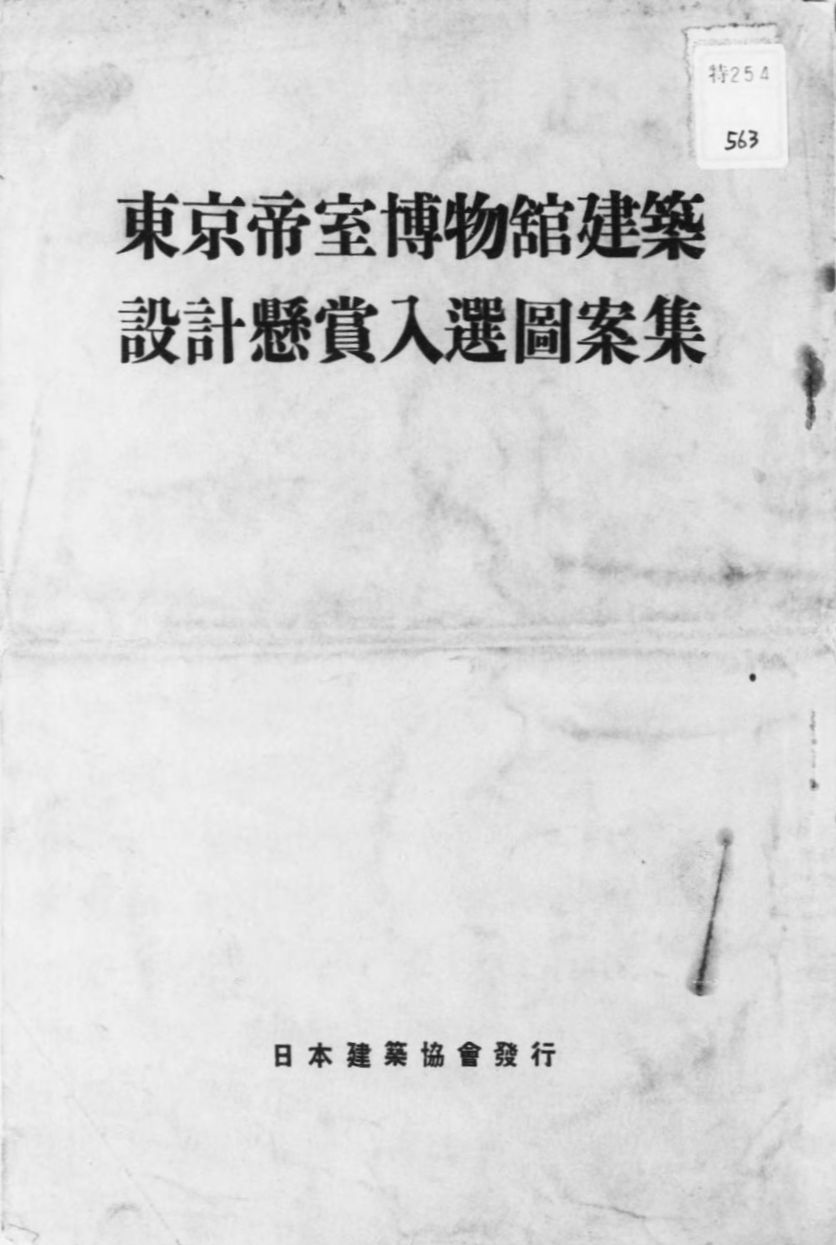 特254
563
東京帝室博物舘建築
設計懸賞入選圖案集
日本建築協會發行